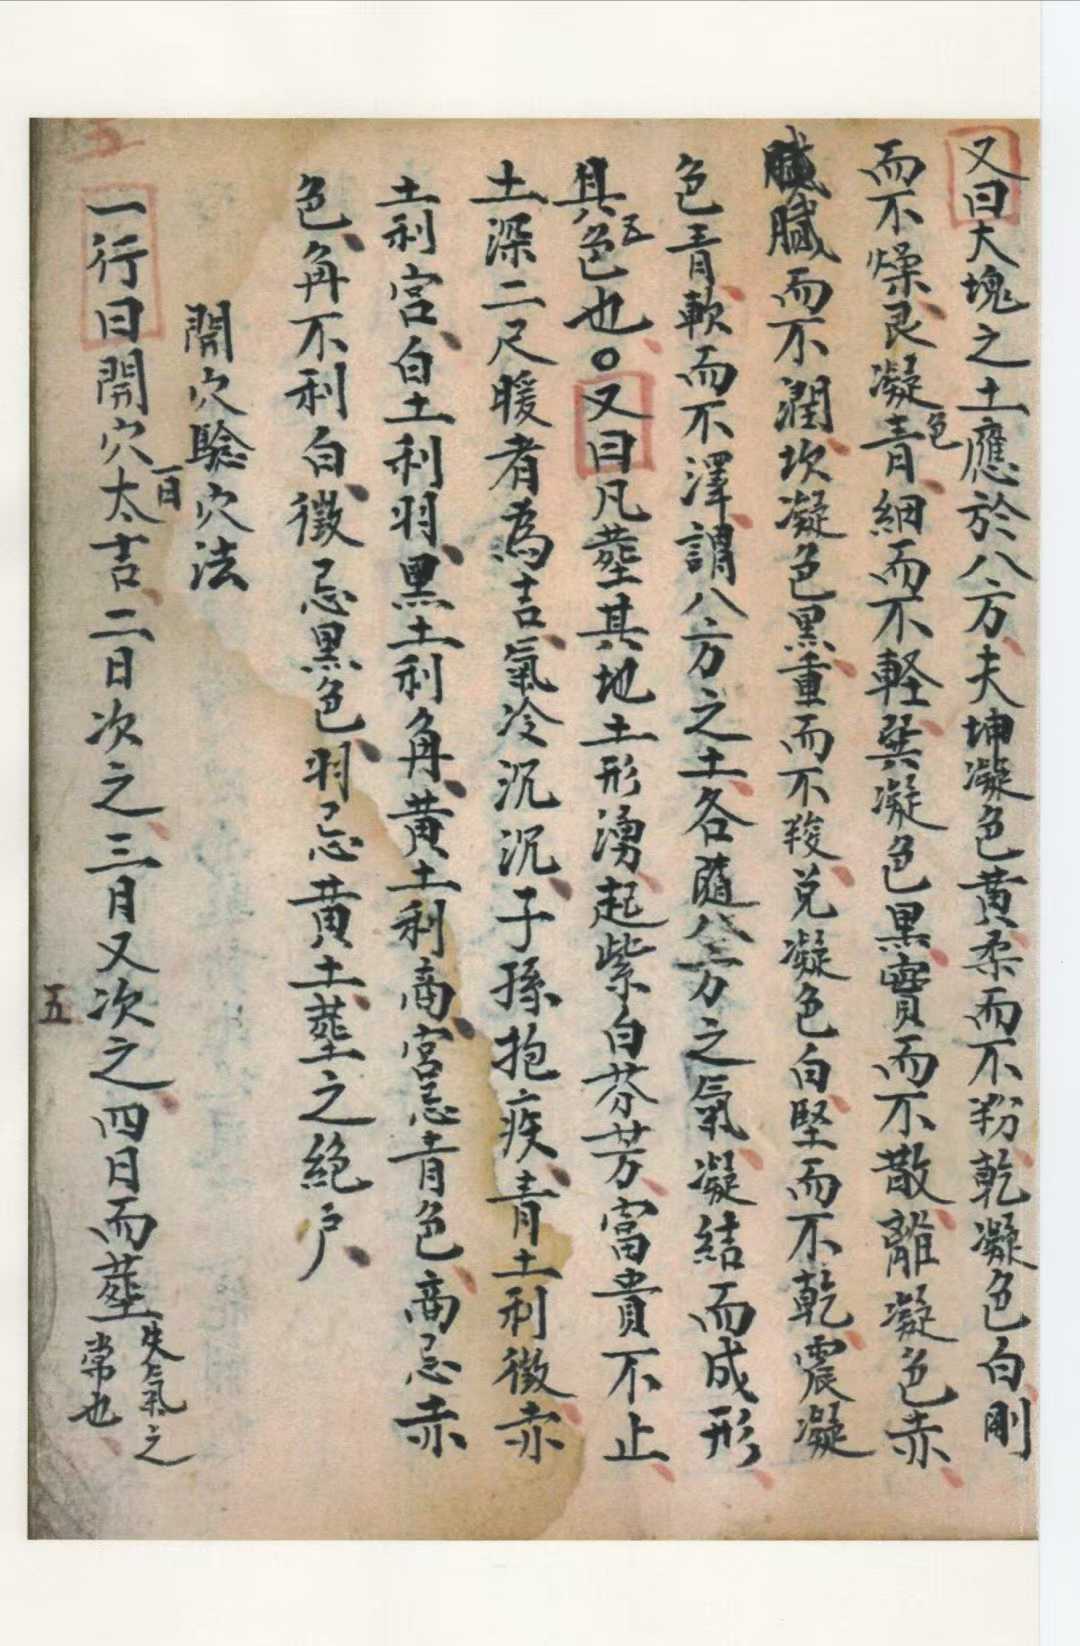 又曰大塊之土應於八方夫坤凝色黄柔而不粉乾凝色白剛
而不燥艮凝青色細而不軽巽凝色黒實而不散離凝色赤
膩膩而不潤坎凝色黒重而不稜兌凝色白堅而不乾震凝
色青軟而不澤謂八方之土各随八方之氣凝結而成形
具五色也○又曰凡塟其地土形湧起紫白芬芳富貴不止
土深二尺暖者為吉氣冷沉沉子孫抱疾青土利徴赤
土利宮白土利羽黒土利角黄土利商宮忌青色商忌赤
色角不利白徴忌黒色羽忌黄土塟之絶戸
開穴驗穴法
一行曰開穴一日太吉二日次之三日又次之四日而塟失氣之常也
五
五